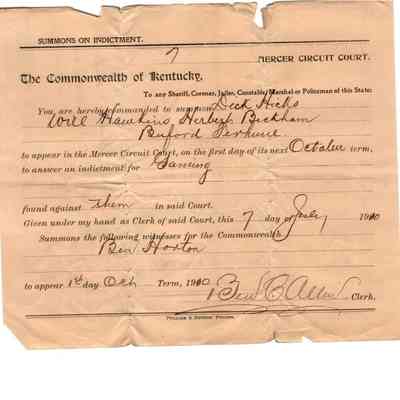 SUMMONS ON INDICTMENT.
7
MERCER CIRCUIT COURT.
The Commonwealth of Kentucky,
To any Sheriff, Coroner, Jailer, Constable, Marshal or Policeman of this State:
You are hereby commanded to summon Dick Hicks
Will Hawkins, Herbert Beckham
Buford Perkins
to appear in the Mercer Circuit Court, on the first day of its next October term,
to answer an indictment for Gaming
found against them in said Court.
Given under my hand as Clerk of said Court, this 7 day of July 1910
Summons the following witnesses for the Commonwealth
Ben Horton
to appear 1st day Oct Term, 1910.
Ben C Allen Clerk.